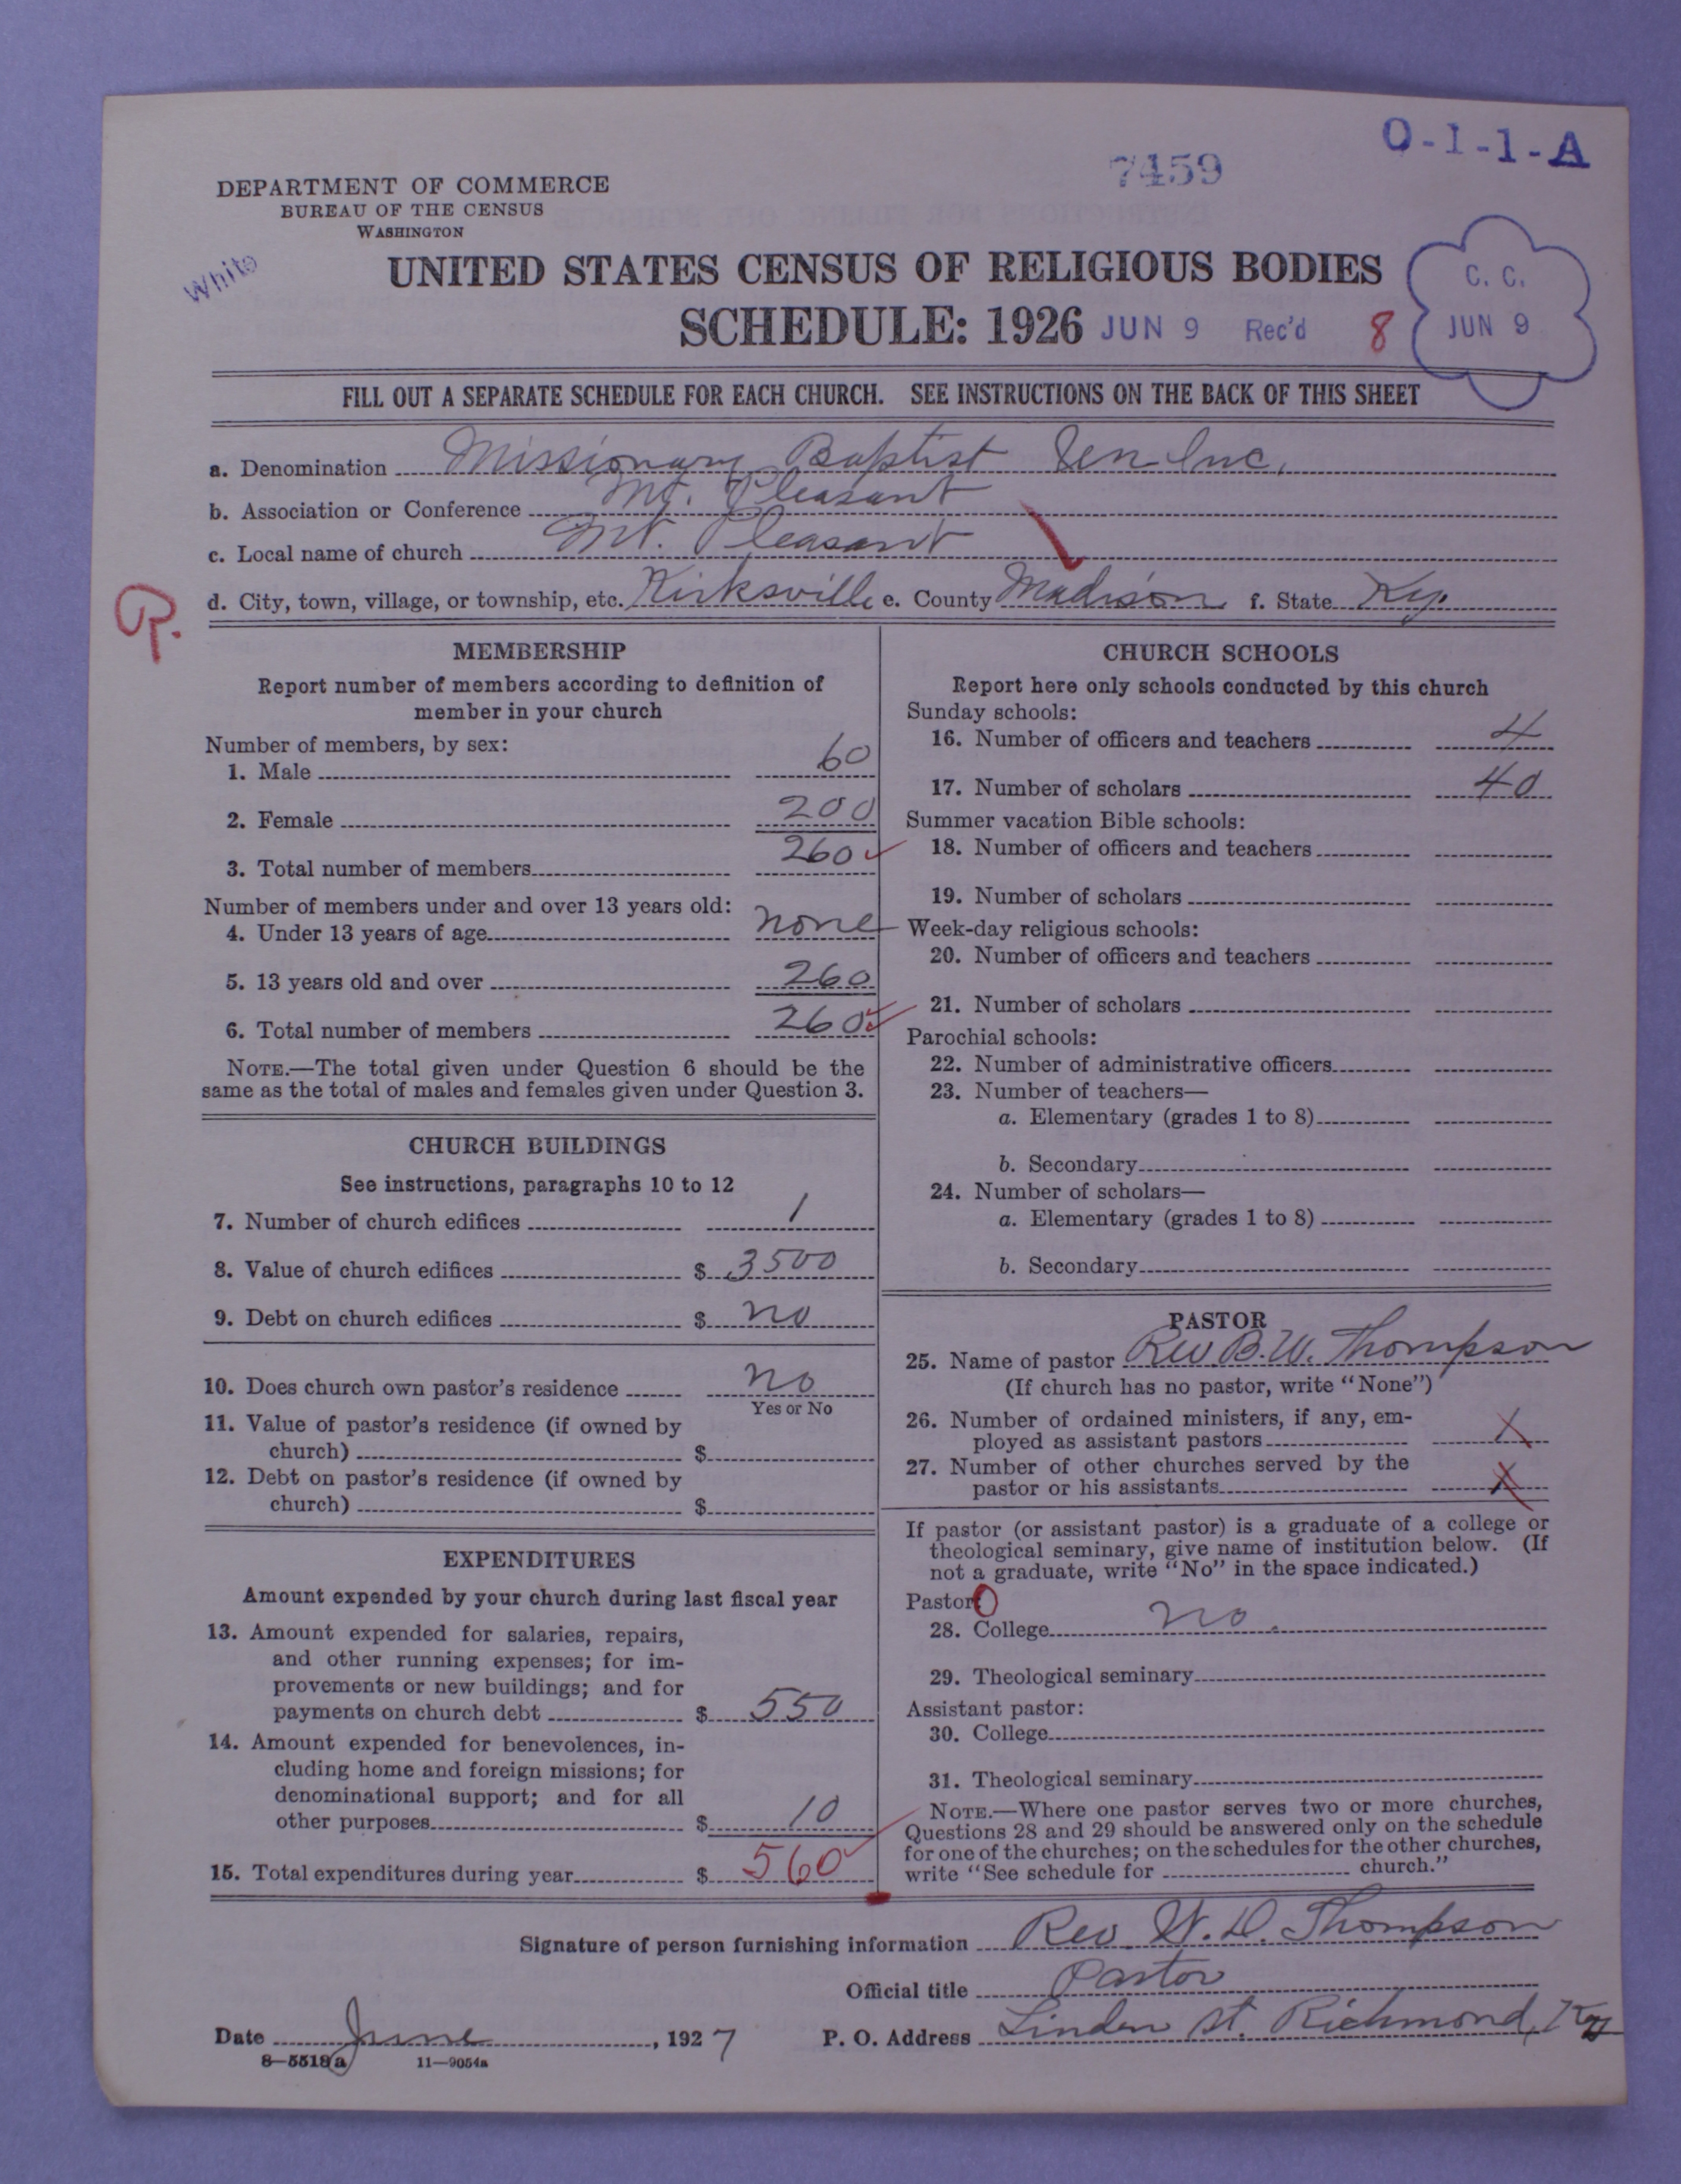 O-1-1-A
7459
DEPARTMENT OF COMMERCE
BUREAU OF THE CENSUS
WASHINGTON
White
UNITED STATES CENSUS OF RELIGIOUS BODIES
SCHEDULE: 1926 JUN 9 Rec'd 8
C. C.
JUN 9
FILL OUT A SEPARATE SCHEDULE FOR EACH CHURCH. SEE INSTRUCTIONS ON THE BACK OF THIS SHEET
a. Denomination Missionary Baptist Inc.
b. Association or Conference Mt. Pleasant
c. Local name of church Mt. Pleasant
d. City, town, village, or township, etc. Kirksville e. County Madison f. State Ky.
R.
MEMBERSHIP
Report number of members according to definition of
member in your church
Number of members, by sex:
1. Male 60
2. Female 200
3. Total number of members 260
Number of members under and over 13 years old:
4. Under 13 years of age none
5. 13 years old and over 260
6. Total number of members 260
NOTE.—The total given under Question 6 should be the
same as the total of males and females given under Question 3.
CHURCH BUILDINGS
See instructions, paragraphs 10 to 12
7. Number of church edifices 1
8. Value of church edifices $ 3500
9. Debt on church edifices $ no
10. Does church own pastor's residence no
Yes or No
11. Value of pastor's residence (if owned by
church) $
12. Debt on pastor's residence (if owned by
church) $
EXPENDITURES
Amount expended by your church during last fiscal year
13. Amount expended for salaries, repairs,
and other running expenses; for im-
provements or new buildings; and for
payments on church debt $ 550
14. Amount expended for benevolences, in-
cluding home and foreign missions; for
denominational support; and for all
other purposes $ 10
15. Total expenditures during year $ 560
CHURCH SCHOOLS
Report here only schools conducted by this church
Sunday schools:
16. Number of officers and teachers 4
17. Number of scholars 40
Summer vacation Bible schools:
18. Number of officers and teachers
19. Number of scholars
Week-day religious schools:
20. Number of officers and teachers
21. Number of scholars
Parochial schools:
22. Number of administrative officers
23. Number of teachers—
a. Elementary (grades 1 to 8)
b. Secondary
24. Number of scholars—
a. Elementary (grades 1 to 8)
b. Secondary
PASTOR
25. Name of pastor Rev B. W. Thompson
(If church has no pastor, write "None")
26. Number of ordained ministers, if any, em-
ployed as assistant pastors X
27. Number of other churches served by the
pastor or his assistants X
If pastor (or assistant pastor) is a graduate of a college or
theological seminary, give name of institution below. (If
not a graduate, write "No" in the space indicated.)
Pastor: O
28. College no.
29. Theological seminary
Assistant pastor:
30. College
31. Theological seminary
NOTE.—Where one pastor serves two or more churches,
Questions 28 and 29 should be answered only on the schedule
for one of the churches; on the schedules for the other churches,
write "See schedule for church."
Signature of person furnishing information Rev. W. D. Thompson
Official title Pastor
Date June, 1927 P. O. Address Linden st. Richmond, Ky
8—5518a 11—9054a